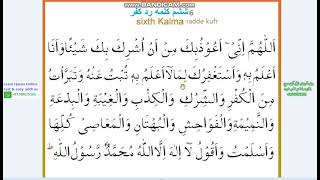 WWW.BANDICAM.COM
6 ششم كلمه رد كفر
sixth Kalma radde kufr
اَللّٰهُمَّ اِنِّىْۤ اَعُوْذُبِكَ مِنْ اَنْ اُشْرِكَ بِكَ شَيْئًا وَّاَنَا
اَعْلَمُ بِهٖ وَاَسْتَغْفِرُكَ لِمَالَاۤ اَعْلَمُ بِهٖ تُبْتُ عَنْهُ وَتَبَرَّأْتُ
مِنَ الْكُفْرِ وَالشِّرْكِ وَالْكِذْبِ وَالْغِيْبَةِ وَالْبِدْعَةِ
وَالنَّمِيْمَةِ وَالْفَوَاحِشِ وَالْبُهْتَانِ وَالْمَعَاصِىْ كُلِّهَا
وَاَسْلَمْتُ وَاَقُوْلُ لَاۤ اِلٰهَ اِلَّا اللهُ مُحَمَّدٌ رَّسُوْلُ اللهِ